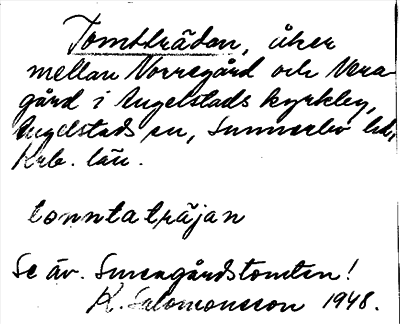 Tomtträdan, åker
mellan Norregård och Vera-
gård i Angelstads kyrkby,
Angelstads sn, Sunnerbo hd,
Krb. län.
tonntaträjan
Se äv. Smensgårdstomten!
K. Salomonsson 1948.